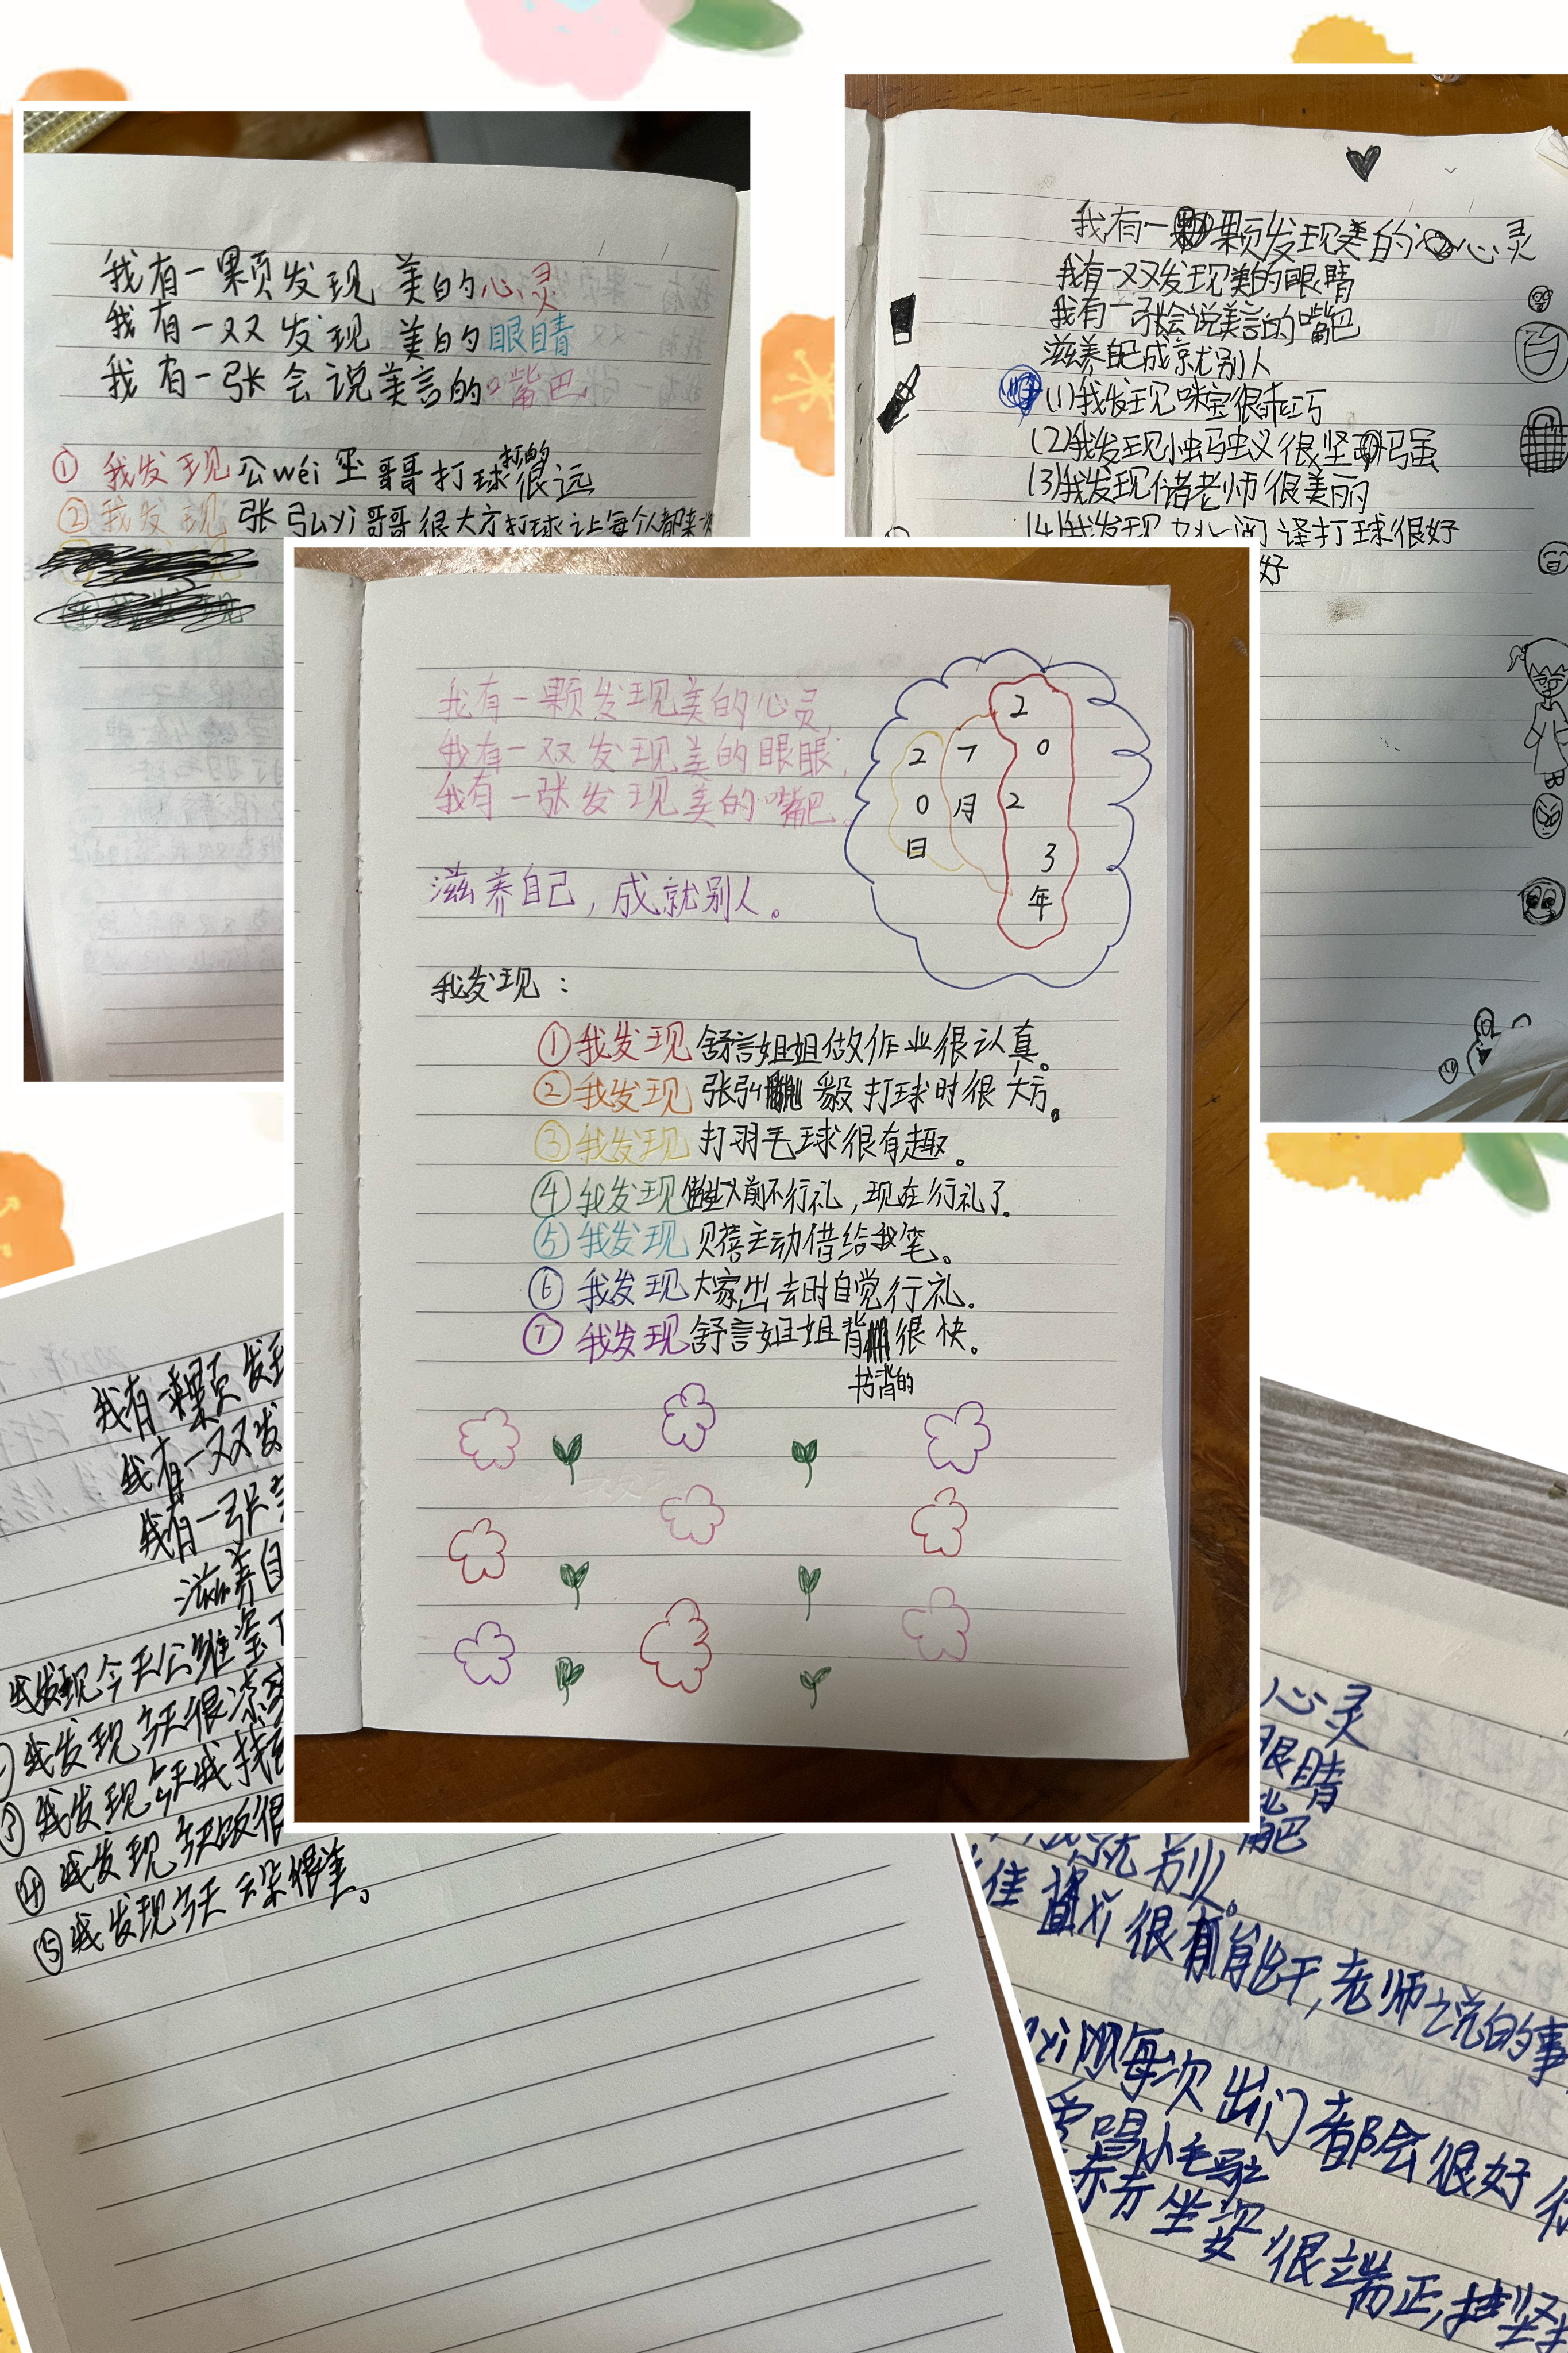 我有一颗发现美的心灵
我有一双发现美的眼睛
我有一张会说美言的嘴巴
①我发现公wéi玺哥哥打球打的很远
②我发现张弘yì哥哥很大方打球让每个人都来
我有一颗发现美的心灵
我有一双发现美的眼睛
我有一张会说美言的嘴巴
滋养自己成就别人
(1)我发现咪宝很乖巧
(2)我发现小蚂蚁很坚强
(3)我发现储老师很美丽
(4)我发现 译打球很好
好
我有一颗发现美的心灵,
我有一双发现美的眼睛,
我有一张发现美的嘴巴。
滋养自己,成就别人。
2023年
7月
20日
我发现:
①我发现舒言姐姐做作业很认真。
②我发现张弘毅打球时很大方。
③我发现打羽毛球很有趣。
④我发现 以前不行礼,现在行礼了。
⑤我发现贝蓓主动借给我笔。
⑥我发现大家出去时自觉行礼.
⑦我发现舒言姐姐背书背的很快。
我有一颗发现
我有一双发
我有一张
滋养自
我发现今天公维玺
我发现今天很凉爽
③我发现今天我
④我发现今天饭很
⑤我发现今天云朵很美。
心灵
眼睛
嘴巴
就别人。
佳 很有能干,老师说的事
每次出门都会很好
坐姿很端正,